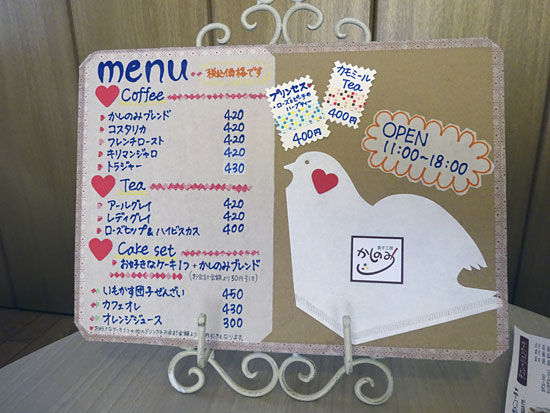 menu 税込価格です
Coffee
かしのみブレンド 420
コスタリカ 420
フレンチロースト 420
キリマンジャロ 420
トラジャー 430
Tea
アールグレイ 420
レディグレイ 420
ローズヒップ&ハイビスカス 400
Cake set
お好きなケーキ1つ+かしのみブレンド
(お会計金額より50円引き)
いもかす団子ぜんざい 450
カフェオレ 430
オレンジジュース 300
プリンセス
ローズ&ピーチの
ハーブティー
400円
カモミール
Tea
400円
OPEN
11:00~18:00
菓子工房
かしのみ